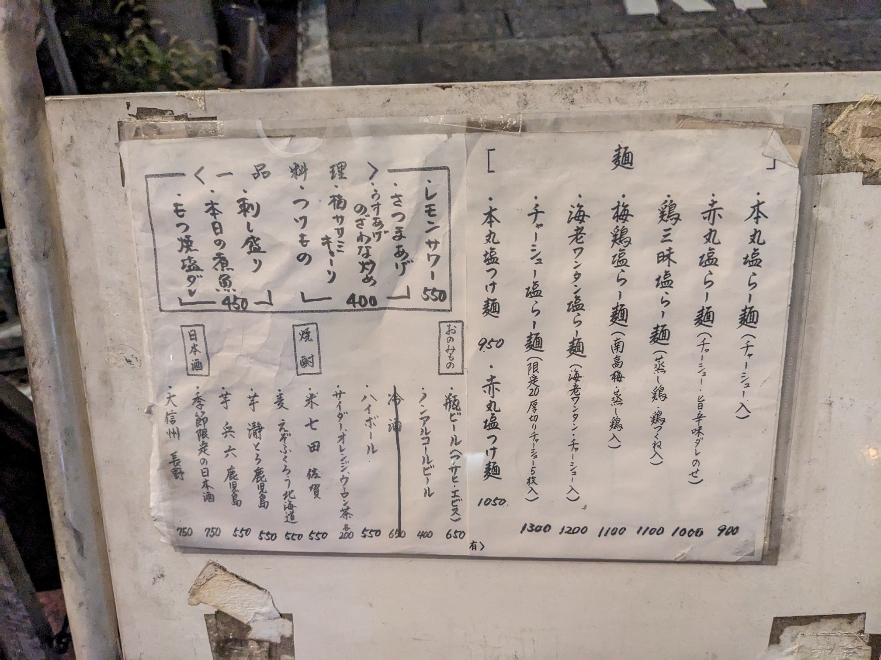 [ 麺 ]
・本丸塩らー麺(チャーシュー入) 900
・赤丸塩らー麺(チャーシュー・旨辛味ダレのせ) 1000
・鶏三昧塩らー麺(蒸し鶏、鶏つくね入) 1100
・梅鶏塩らー麺(南高梅・蒸し鶏入) 1100
・海老ワンタン塩らー麺(海老ワンタン・チャーシュー入) 1200
・チャーシュー塩らー麺(限定20厚切りチャーシュー5枚入) 1300
・本丸塩つけ麺 950 ・赤丸塩つけ麺 1050
<一品料理>
・レモンサワー 550
・さつまあげ
・うすあげのざわな炒め
・梅ササミキューリ
・つけもの
400
・刺し盛り
・本日の煮魚
・もつ焼塩ダレ
450
おのみもの
・瓶ビール(アサヒ・エビス) 650
・ノンアルコールビール 400
・冷酒 650
・ハイボール 550
・サイダー、オレンジ、ウーロン茶 各200
焼酎
・米 七田 佐賀 550
・麦 えぞふくろう 北海道 550
・芋 濳とら 鹿児島 550
・芋 兵六 鹿児島 550
日本酒
・季節限定の日本酒 750
・大信州 長野 750
有>